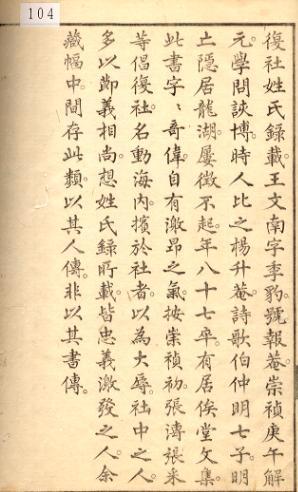 104
復社姓氏錄載王文南字季豹號報菴崇禎庚午解
元學問詼博時人比之楊升菴詩歌伯仲明七子明
亡隱居龍湖屢徵不起年八十七卒有居俟堂文集
此書字〻奇偉自有激昂之氣按崇禎初張溥張采
等倡復社名動海內擯於社者以為大辱社中之人
多以節義相尚想姓氏錄所載皆忠義激發之人余
藏幅中間存此類以其人傳非以其書傳